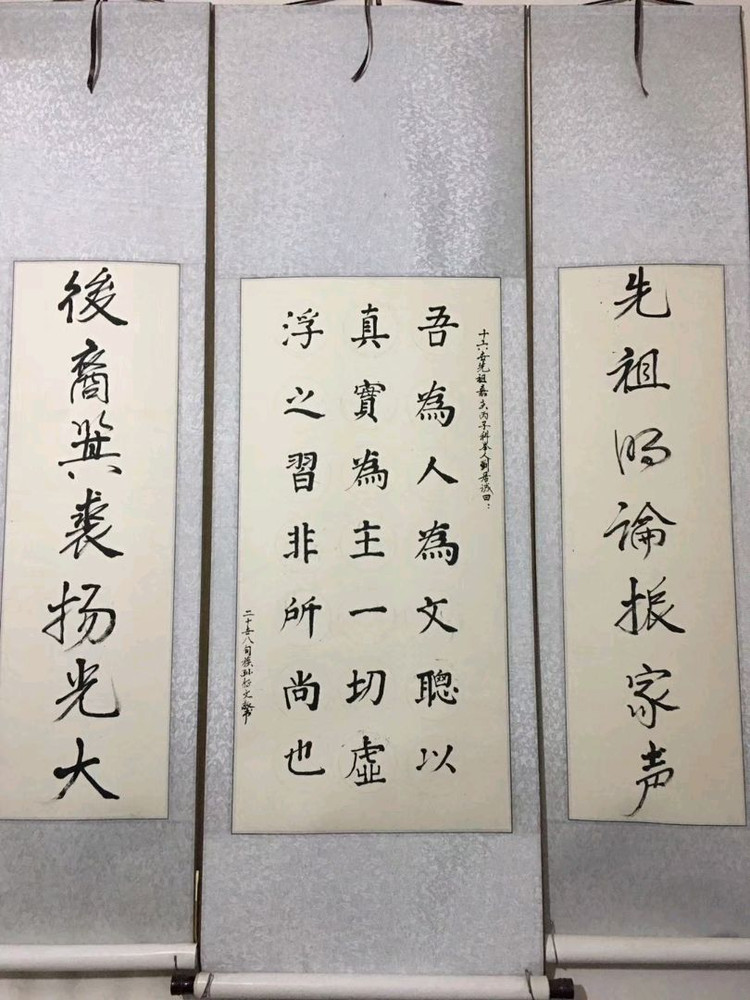 先祖明論振家声
十六世先祖嘉庆丙子科举人劉居诚曰：
吾為人為文聰以
真實為主一切虛
浮之習非所尚也
二十世八旬族孙文敬书
後裔箕裘扬光大